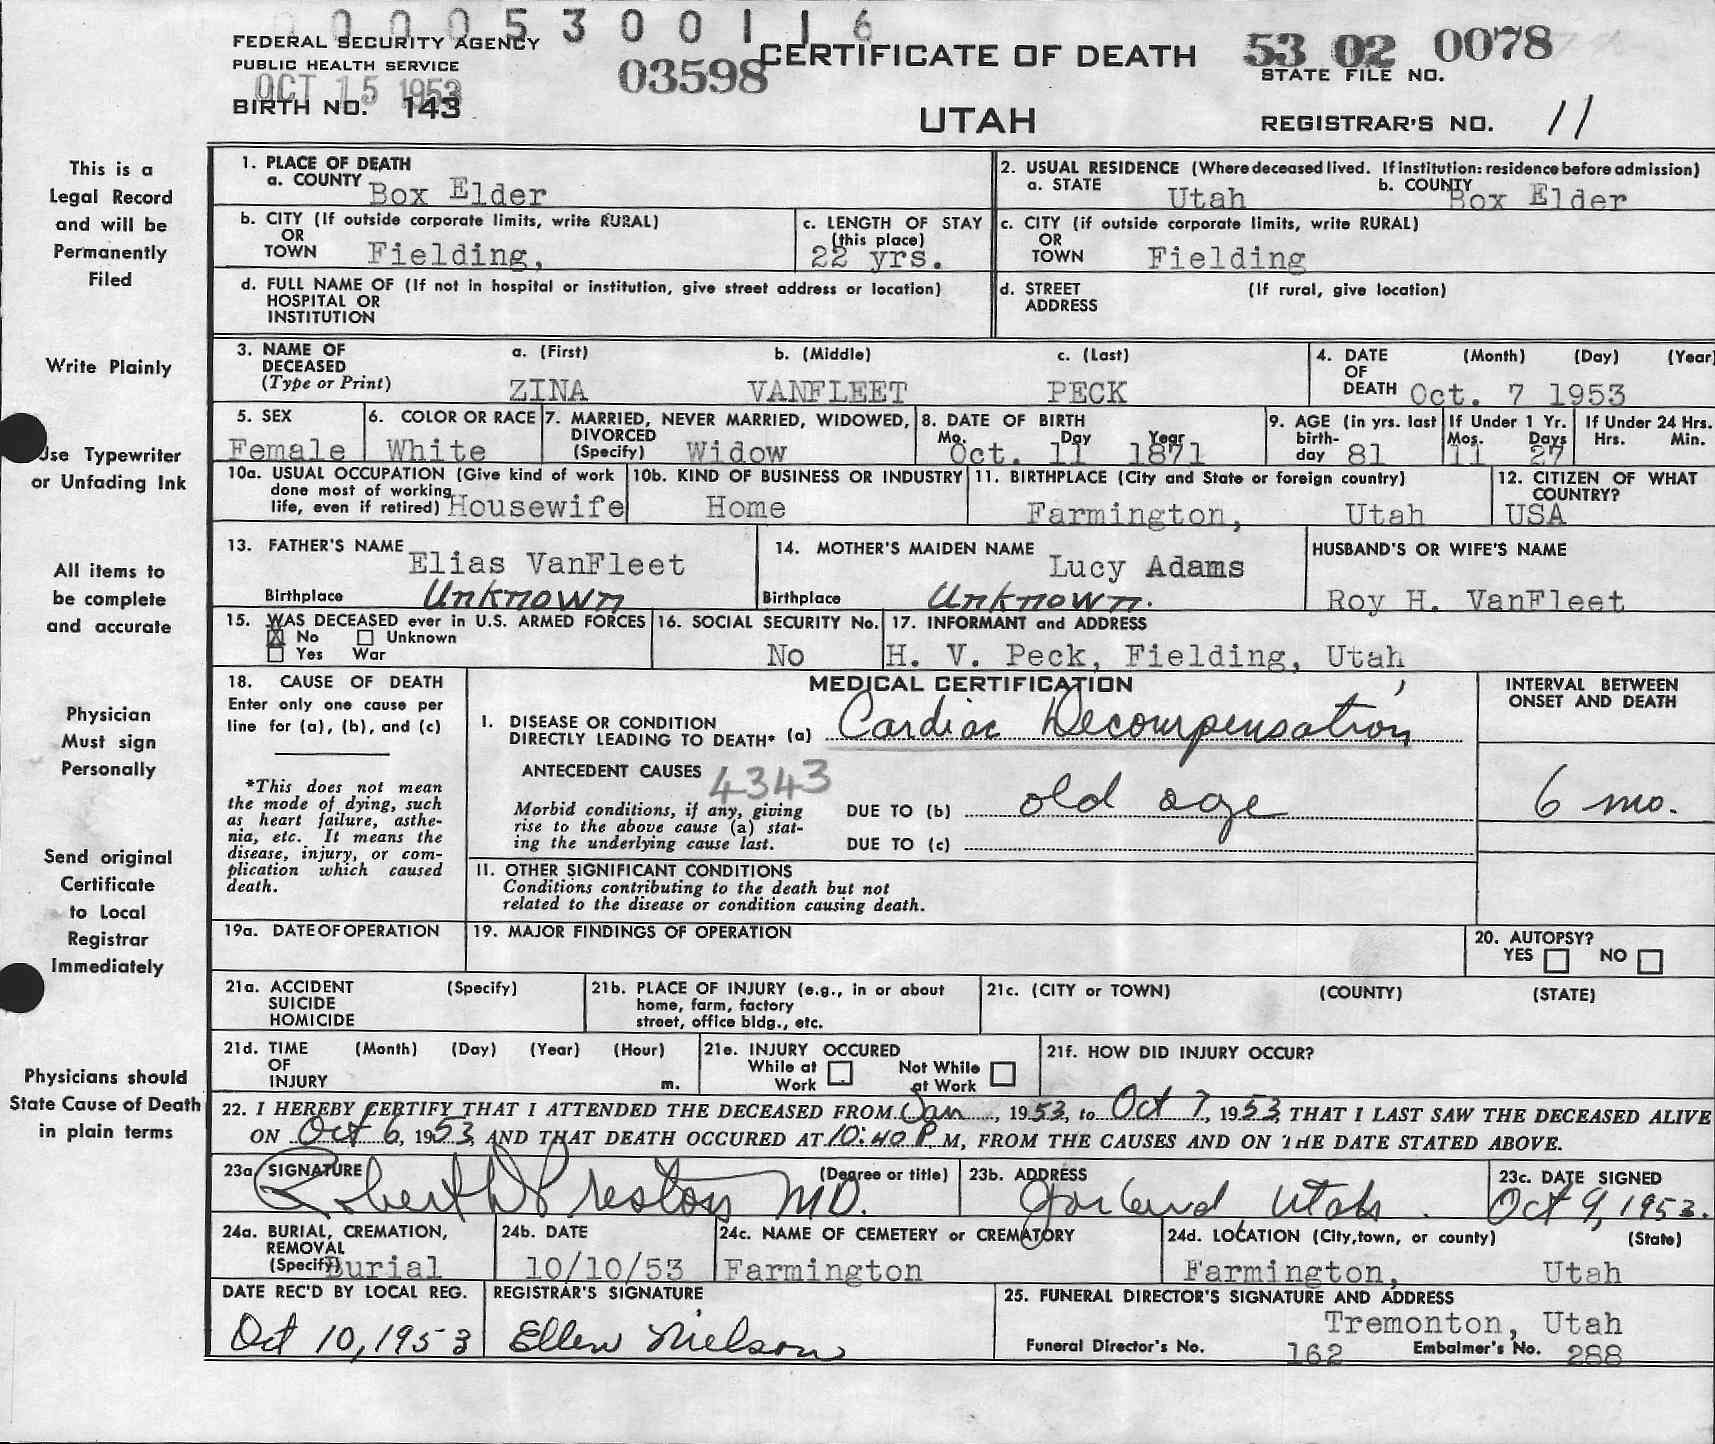 0 0 0 5 3 0 0 1 1 6
FEDERAL SECURITY AGENCY
PUBLIC HEALTH SERVICE
OCT 15 1953
BIRTH NO. 143
03598
CERTIFICATE OF DEATH
UTAH
53 02 0078
STATE FILE NO.
REGISTRAR'S NO. 11
This is a
Legal Record
and will be
Permanently
Filed
Write Plainly
Use Typewriter
or Unfading Ink
All items to
be complete
and accurate
Physician
Must sign
Personally
Send original
Certificate
to Local
Registrar
Immediately
Physicians should
State Cause of Death
in plain terms
1. PLACE OF DEATH
a. COUNTY Box Elder
2. USUAL RESIDENCE (Where deceased lived. If institution: residence before admission)
a. STATE Utah b. COUNTY Box Elder
b. CITY (If outside corporate limits, write RURAL)
OR
TOWN Fielding,
c. LENGTH OF STAY
(this place)
22 yrs.
c. CITY (if outside corporate limits, write RURAL)
OR
TOWN Fielding
d. FULL NAME OF (If not in hospital or institution, give street address or location)
HOSPITAL OR
INSTITUTION
d. STREET (If rural, give location)
ADDRESS
3. NAME OF
DECEASED
(Type or Print)
a. (First) b. (Middle) c. (Last)
ZINA VANFLEET PECK
4. DATE (Month) (Day) (Year)
OF
DEATH Oct. 7 1953
5. SEX
Female
6. COLOR OR RACE
White
7. MARRIED, NEVER MARRIED, WIDOWED,
DIVORCED
(Specify) Widow
8. DATE OF BIRTH
Mo. Day Year
Oct. 11 1871
9. AGE (in yrs. last
birth-
day 81
If Under 1 Yr.
Mos. Days
11 27
If Under 24 Hrs.
Hrs. Min.
10a. USUAL OCCUPATION (Give kind of work
done most of working
life, even if retired) Housewife
10b. KIND OF BUSINESS OR INDUSTRY
Home
11. BIRTHPLACE (City and State or foreign country)
Farmington, Utah
12. CITIZEN OF WHAT
COUNTRY?
USA
13. FATHER'S NAME Elias VanFleet
Birthplace Unknown
14. MOTHER'S MAIDEN NAME Lucy Adams
Birthplace Unknown.
HUSBAND'S OR WIFE'S NAME
Roy H. VanFleet
15. WAS DECEASED ever in U.S. ARMED FORCES
X No Unknown
Yes War
16. SOCIAL SECURITY No.
No
17. INFORMANT and ADDRESS
H. V. Peck, Fielding, Utah
18. CAUSE OF DEATH
Enter only one cause per
line for (a), (b), and (c)
*This does not mean
the mode of dying, such
as heart failure, asthe-
nia, etc. It means the
disease, injury, or com-
plication which caused
death.
MEDICAL CERTIFICATION
I. DISEASE OR CONDITION
DIRECTLY LEADING TO DEATH* (a) Cardiac Decompensation
ANTECEDENT CAUSES 4343
Morbid conditions, if any, giving
rise to the above cause (a) stat-
ing the underlying cause last.
DUE TO (b) old age
DUE TO (c)
INTERVAL BETWEEN
ONSET AND DEATH
6 mo.
II. OTHER SIGNIFICANT CONDITIONS
Conditions contributing to the death but not
related to the disease or condition causing death.
19a. DATE OF OPERATION
19. MAJOR FINDINGS OF OPERATION
20. AUTOPSY?
YES NO
21a. ACCIDENT (Specify)
SUICIDE
HOMICIDE
21b. PLACE OF INJURY (e.g., in or about
home, farm, factory
street, office bldg., etc.
21c. (CITY or TOWN) (COUNTY) (STATE)
21d. TIME (Month) (Day) (Year) (Hour)
OF
INJURY m.
21e. INJURY OCCURED
While at Work Not While at Work
21f. HOW DID INJURY OCCUR?
22. I HEREBY CERTIFY THAT I ATTENDED THE DECEASED FROM Jan, 1953, to Oct 7, 1953, THAT I LAST SAW THE DECEASED ALIVE
ON Oct 6, 1953, AND THAT DEATH OCCURED AT 10:40 P M, FROM THE CAUSES AND ON THE DATE STATED ABOVE.
23a. SIGNATURE (Degree or title)
Robert D Preston MD.
23b. ADDRESS
Garland Utah.
23c. DATE SIGNED
Oct 9, 1953.
24a. BURIAL, CREMATION,
REMOVAL
(Specify) Burial
24b. DATE
10/10/53
24c. NAME OF CEMETERY or CREMATORY
Farmington
24d. LOCATION (City, town, or county) (State)
Farmington, Utah
DATE REC'D BY LOCAL REG.
Oct 10, 1953
REGISTRAR'S SIGNATURE
Ellen Nielson
25. FUNERAL DIRECTOR'S SIGNATURE AND ADDRESS
Tremonton, Utah
Funeral Director's No. 162 Embalmer's No. 288